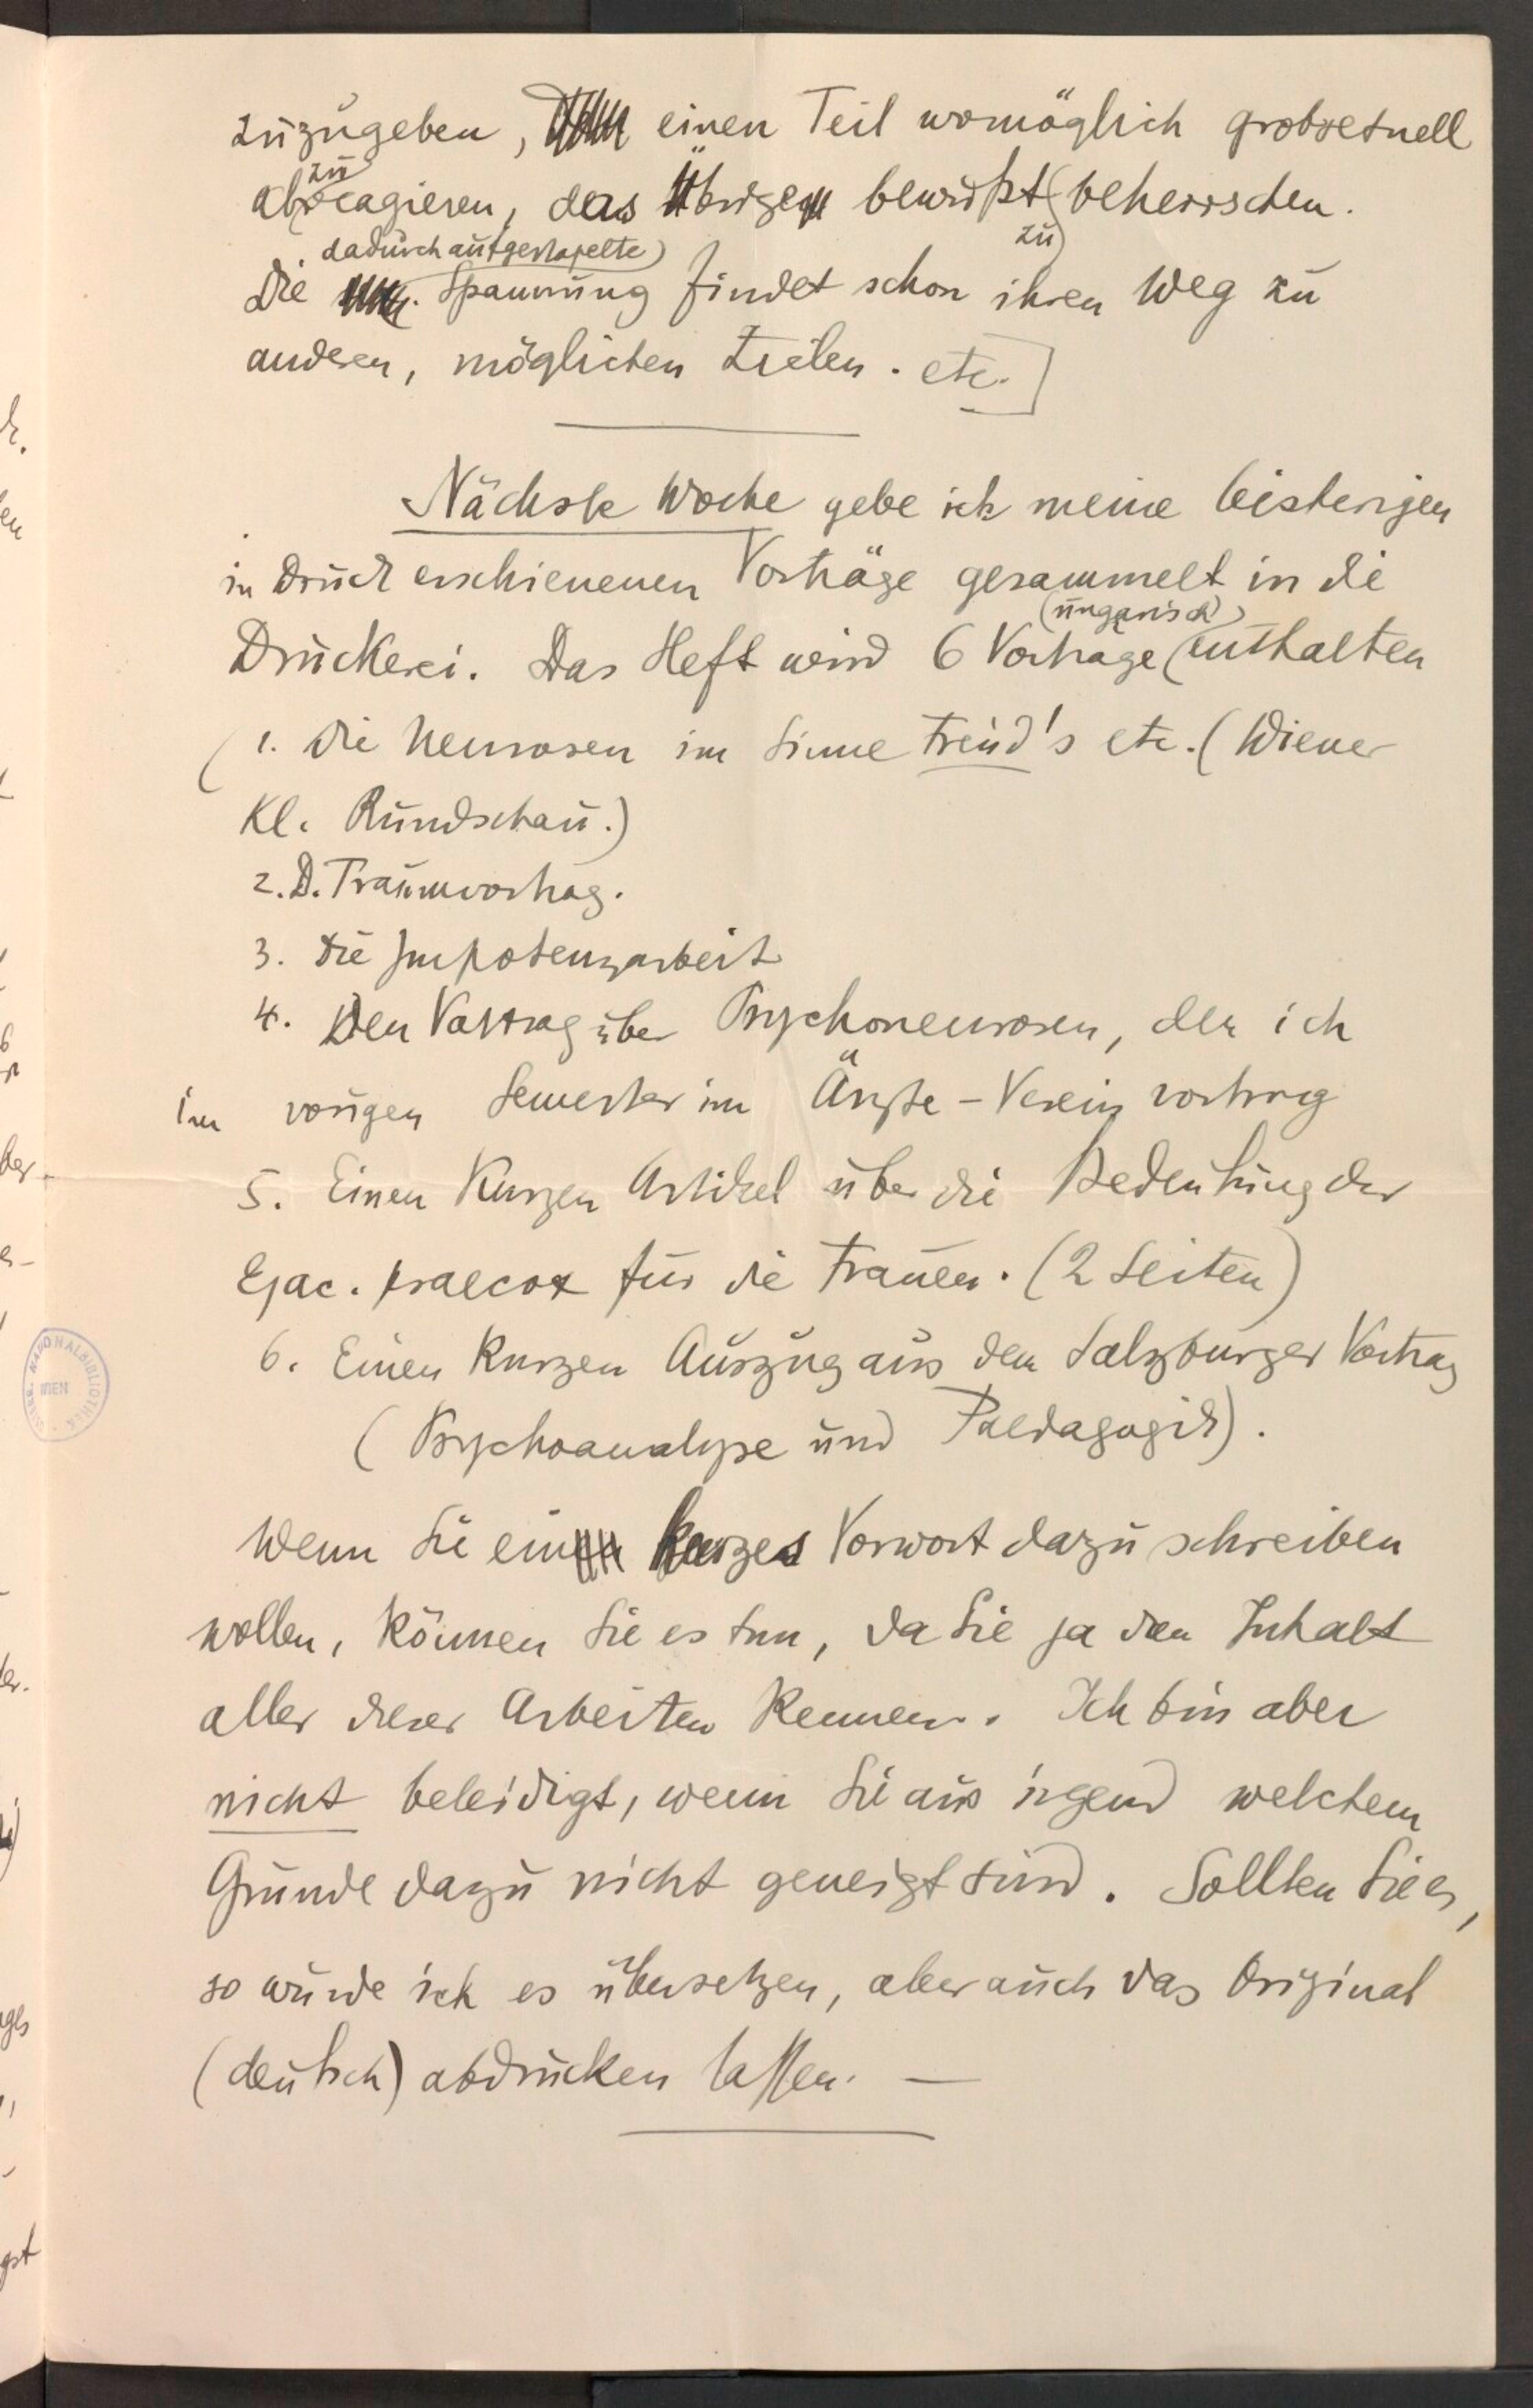 zuzugeben, einen Teil womöglich grobsexuell
abzureagieren, das Übrige bewußt zu beherrschen.
Die dadurch aufgestapelte Spannung findet schon ihren Weg zu
anderen, möglichen Zielen. etc.]
Nächste Woche gebe ich meine bisherigen
in Druck erschienenen Vorträge gesammelt in die
Druckerei. Das Heft wird 6 Vorträge (ungarisch) enthalten
(1. Die Neurosen im Sinne Freud's etc. (Wiener
Kl. Rundschau.)
2. D. Traumvortrag.
3. Die Impotenzarbeit
4. Den Vortrag über Psychoneurosen, den ich
im vorigen Semester im Ärzte-Verein vortrug
5. Einen Kurzen Artikel über die Bedeutung der
Ejac. praecox für die Frauen. (2 Seiten)
6. Einen Kurzen Auszug aus dem Salzburger Vortrag
(Psychoanalyse und Paedagogik).
Wenn Sie ein kurzes Vorwort dazu schreiben
wollen, können Sie es tun, da Sie ja den Inhalt
aller dieser Arbeiten kennen. Ich bin aber
nicht beleidigt, wenn Sie aus irgend welchem
Grunde dazu nicht geneigt sind. Sollten Sie es,
so würde ich es übersetzen, aber auch das Original
(deutsch) abdrucken lassen. —
NATIONALBIBLIOTHEK
WIEN